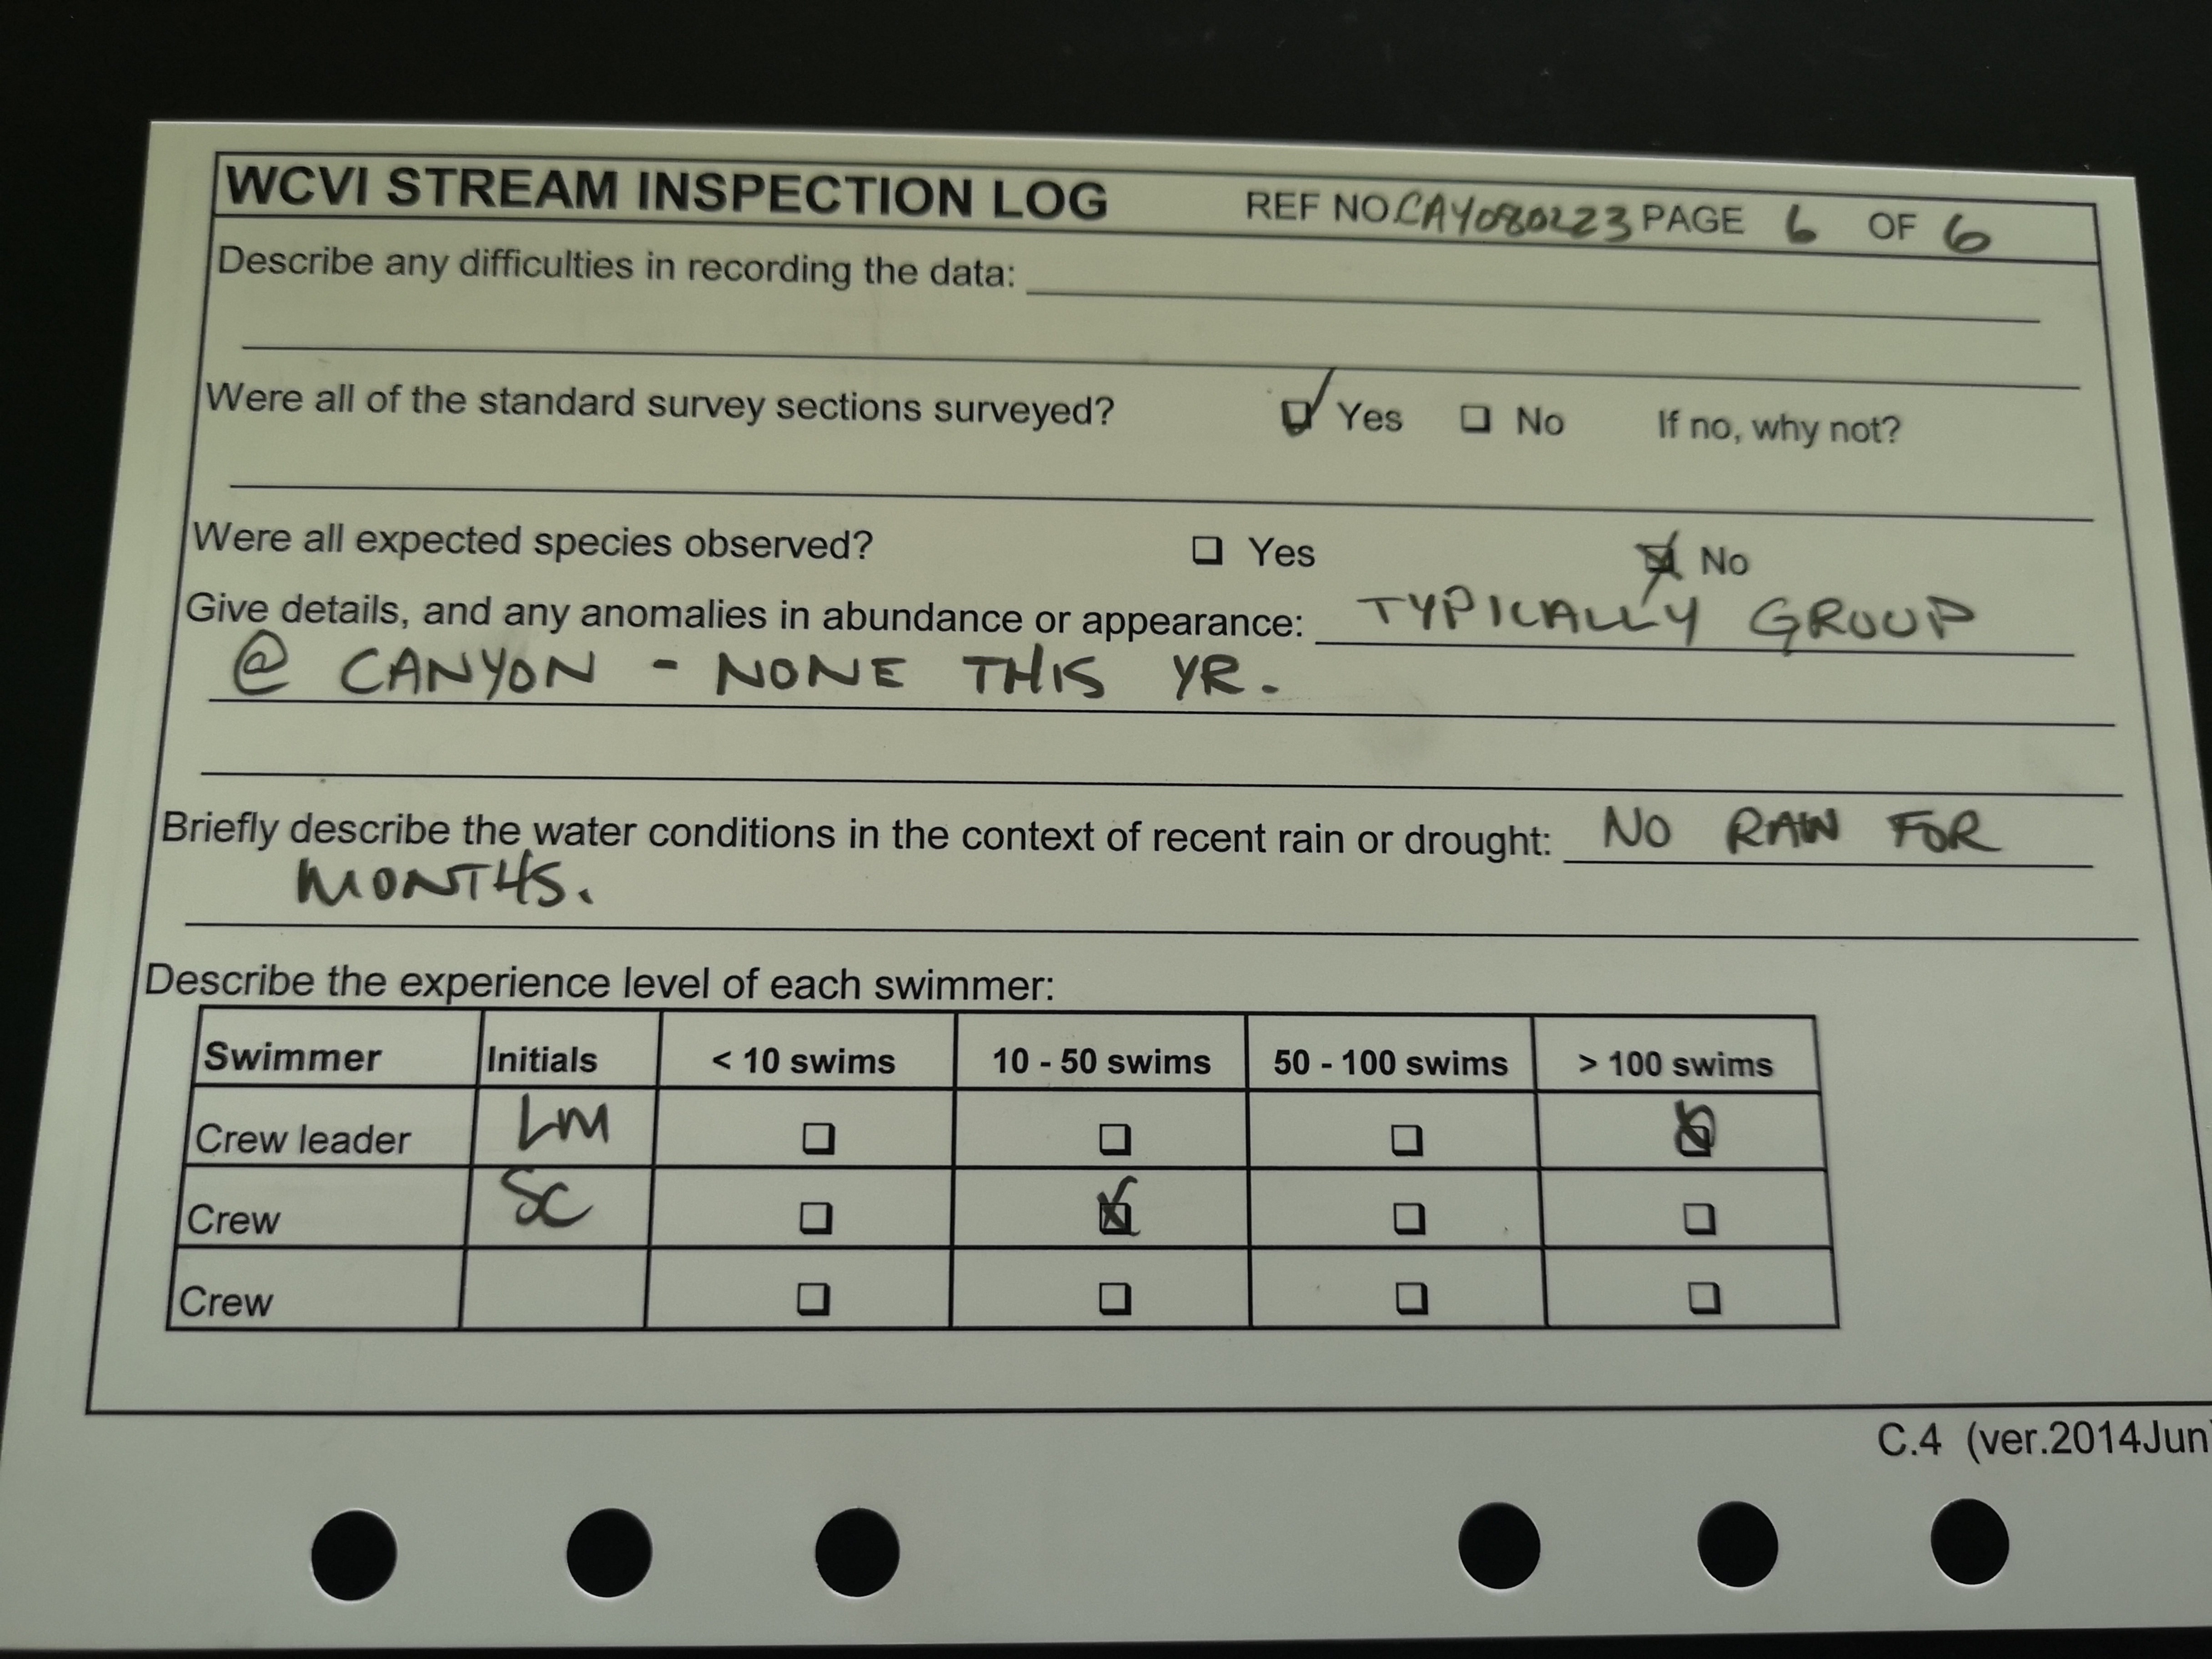 WCVI STREAM INSPECTION LOG REF NO CAY080223 PAGE 6 OF 6
Describe any difficulties in recording the data:
Were all of the standard survey sections surveyed? Yes No If no, why not?
Were all expected species observed? Yes No
Give details, and any anomalies in abundance or appearance: TYPICALLY GROUP
@ CANYON - NONE THIS YR.
Briefly describe the water conditions in the context of recent rain or drought: NO RAIN FOR
MONTHS.
Describe the experience level of each swimmer:
Swimmer Initials < 10 swims 10 - 50 swims 50 - 100 swims > 100 swims
Crew leader LM
Crew SC
Crew
C.4 (ver.2014Jun)